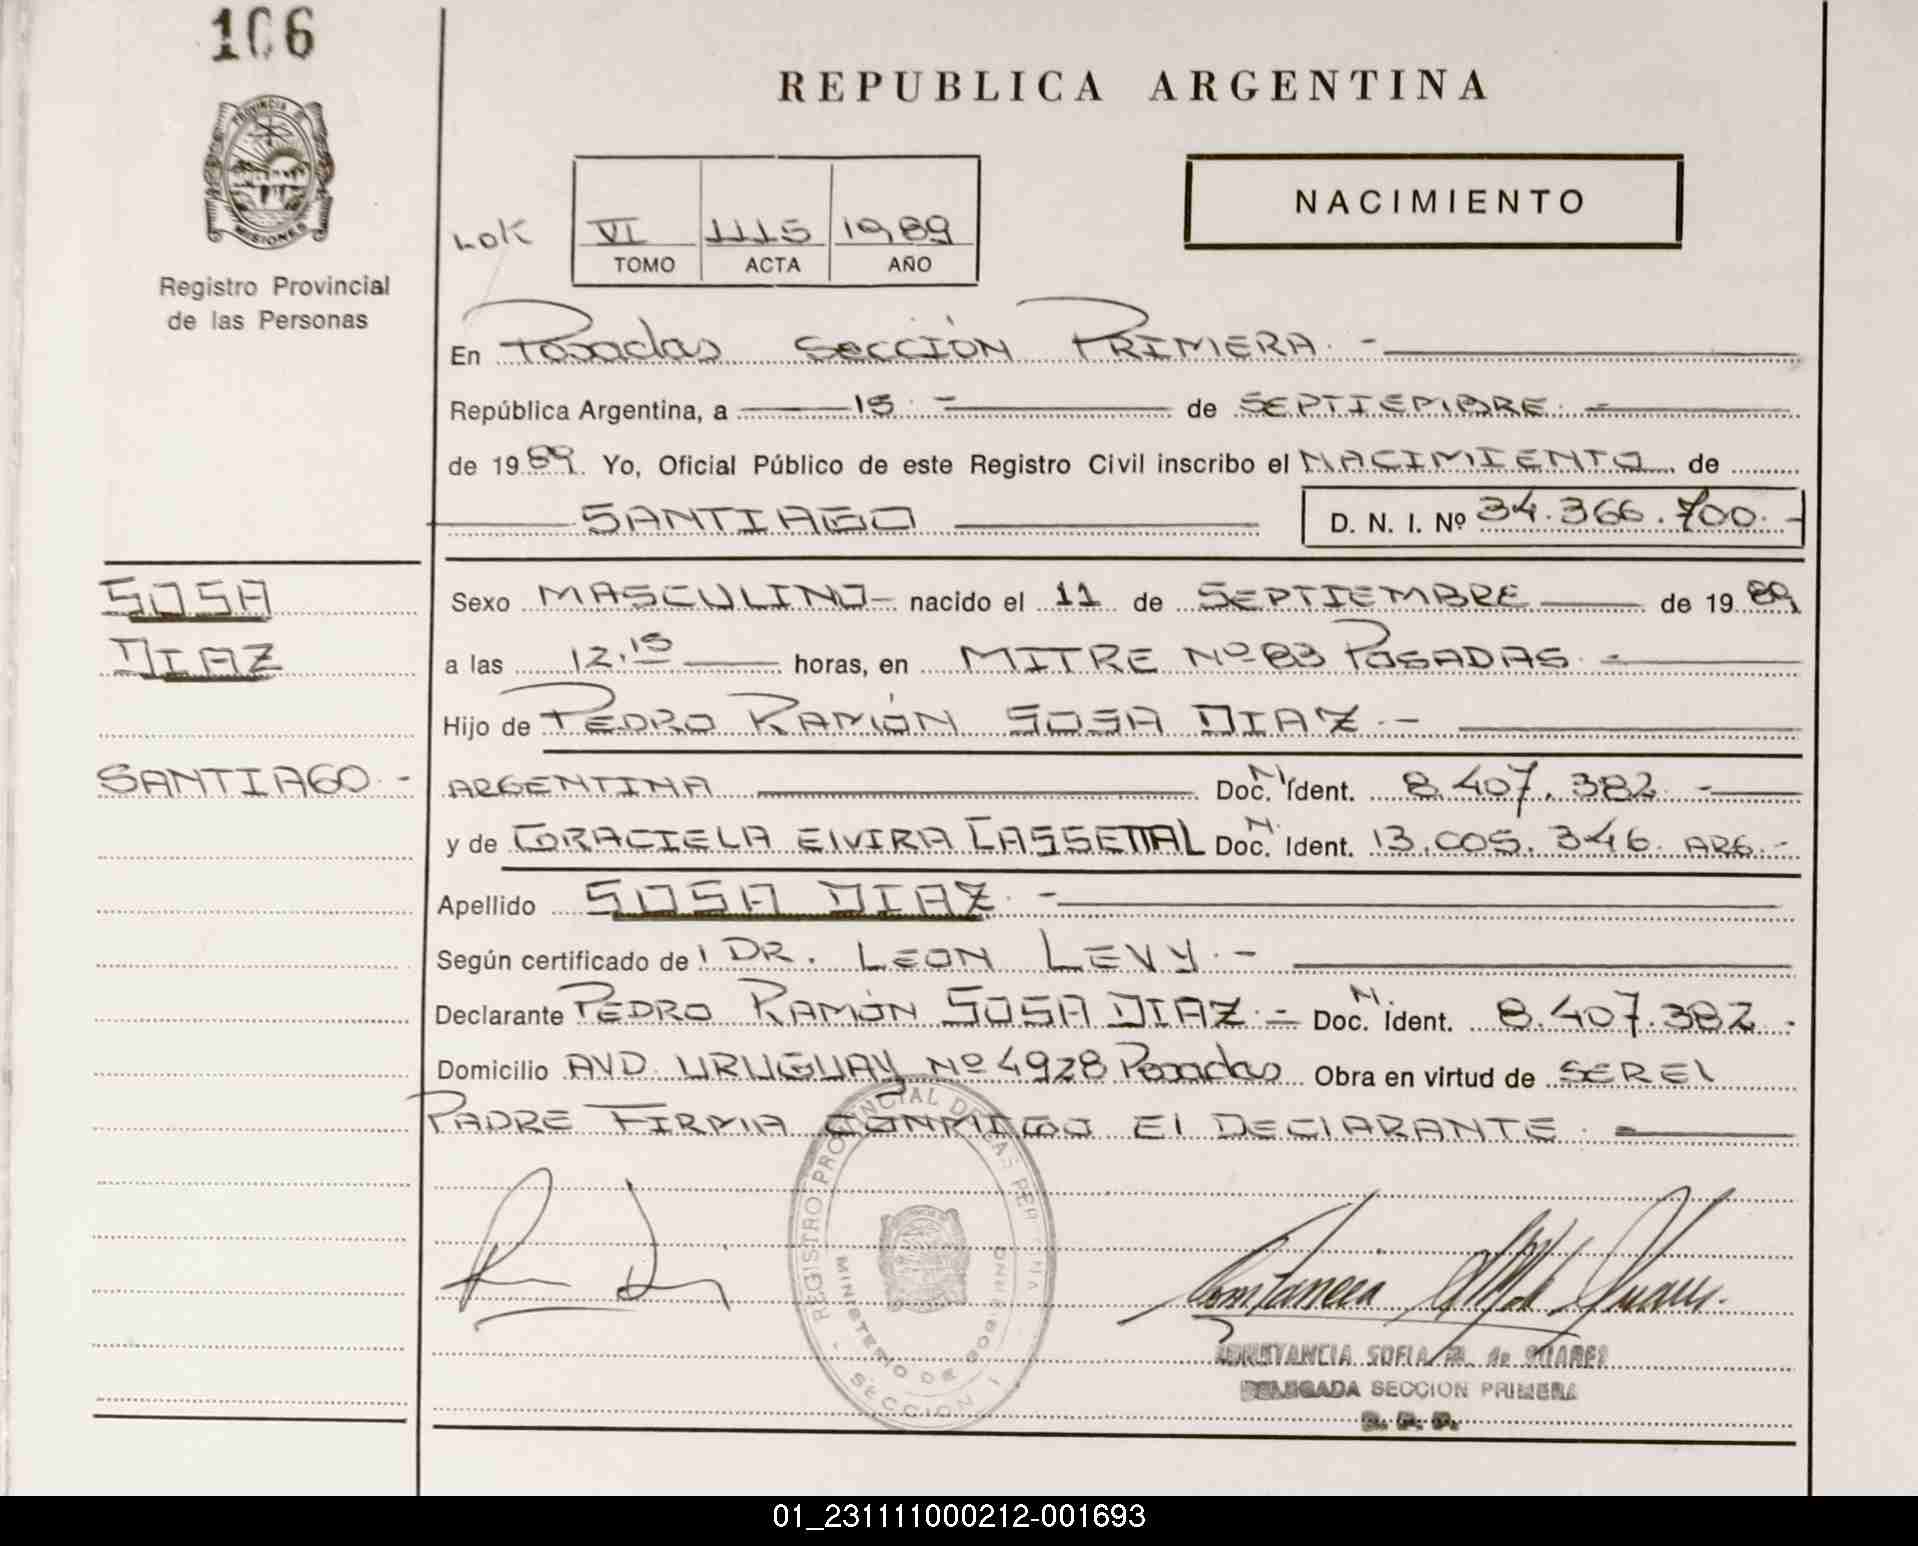 106
REPUBLICA ARGENTINA
PROVINCIA DE
MISIONES
Registro Provincial
de las Personas
VI 1115 1989
TOMO ACTA AÑO
NACIMIENTO
En Posadas Sección PRIMERA.-
República Argentina, a 15.- de SEPTIEMBRE.-
de 1989. Yo, Oficial Público de este Registro Civil inscribo el NACIMIENTO de
SANTIAGO
D. N. I. Nº 34.366.700.-
SOSA
DIAZ
SANTIAGO.-
Sexo MASCULINO- nacido el 11 de SEPTIEMBRE de 1989,
a las 12.15 horas, en MITRE Nº 83 POSADAS.-
Hijo de PEDRO RAMÓN SOSA DIAZ.-
ARGENTINA Doc. N. Ident. 8.407.382.-
y de GRACIELA ElVIRA CASSETTAI Doc. N. Ident. 13.005.346. ARG.-
Apellido SOSA DIAZ.-
Según certificado de DR. LEON LEVY.-
Declarante PEDRO RAMÓN SOSA DIAZ.- Doc. N. Ident. 8.407.382.-
Domicilio AVD. URUGUAY Nº 4928 Posadas Obra en virtud de SER El
PADRE FIRMA CONMIGO El DEClARANTE.
REGISTRO PROVINCIAL DE LAS PERSONAS
MINISTERIO DE GOBIERNO
SECCION 1
CONSTANCIA SOFIA M. de SUAREZ
DELEGADA SECCION PRIMERA
R. P. P.
01_231111000212-001693